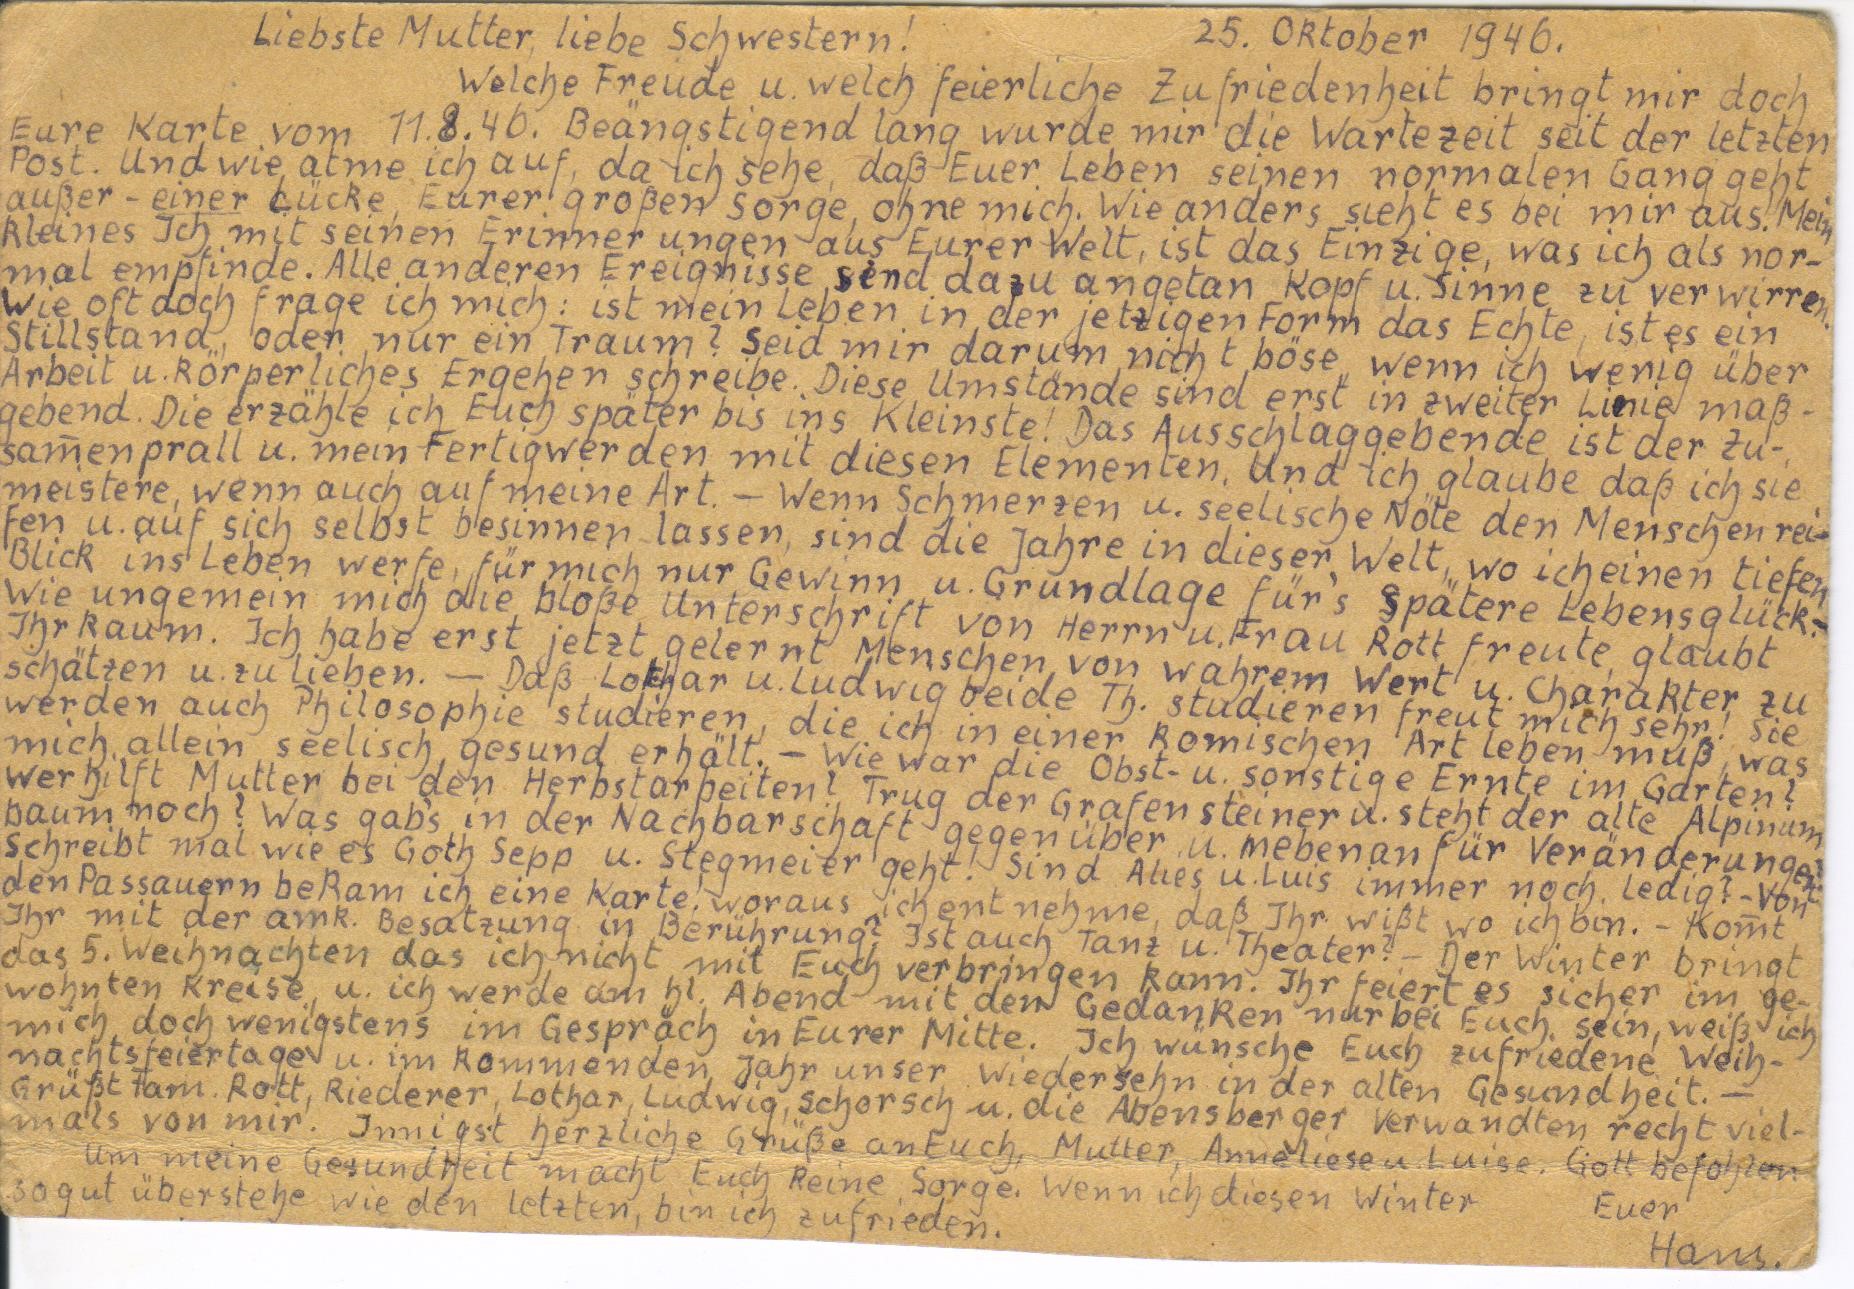 Liebste Mutter, liebe Schwestern! 25. Oktober 1946.
Welche Freude u. welch feierliche Zufriedenheit bringt mir doch
Eure Karte vom 11.8.46. Beängstigend lang wurde mir die Wartezeit seit der letzten
Post. Und wie atme ich auf, da ich sehe, daß Euer Leben seinen normalen Gang geht
außer - einer Lücke, Eurer großen Sorge, ohne mich. Wie anders sieht es bei mir aus! Mein
kleines Ich mit seinen Erinnerungen aus Eurer Welt, ist das Einzige, was ich als nor-
mal empfinde. Alle anderen Ereignisse sind dazu angetan Kopf u. Sinne zu verwirren.
Wie oft doch frage ich mich: ist mein Leben in der jetzigen Form das Echte, ist es ein
Stillstand, oder nur ein Traum? Seid mir darum nicht böse, wenn ich wenig über
Arbeit u. körperliches Ergehen schreibe. Diese Umstände sind erst in zweiter Linie maß-
gebend. Die erzähle ich Euch später bis ins Kleinste! Das Ausschlaggebende ist der Zu-
sam̅enprall u. mein Fertigwerden mit diesen Elementen. Und ich glaube daß ich sie
meistere, wenn auch auf meine Art. — Wenn Schmerzen u. seelische Nöte den Menschen rei-
fen u. auf sich selbst besinnen lassen, sind die Jahre in dieser Welt, wo ich einen tiefen
Blick ins Leben werfe, für mich nur Gewinn u. Grundlage für's spätere Lebensglück. -
Wie ungemein mich die bloße Unterschrift von Herrn u. Frau Rott freute, glaubt
Ihr kaum. Ich habe erst jetzt gelernt Menschen von wahrem Wert u. Charakter zu
schätzen u. zu lieben. — Daß Lothar u. Ludwig beide Th. studieren freut mich sehr! Sie
werden auch Philosophie studieren, die ich in einer komischen Art leben muß, was
mich allein seelisch gesund erhält. - Wie war die Obst- u. sonstige Ernte im Garten?
Wer hilft Mutter bei den Herbstarbeiten? Trug der Grafensteiner u. steht der alte Alpinum
baum noch? Was gab's in der Nachbarschaft gegenüber u. nebenan für Veränderungen?
Schreibt mal wie es Goth Sepp u. Stegmeier geht! Sind Alies u. Luis immer noch ledig? - Von
den Passauern bekam ich eine Karte, woraus ich entnehme, daß Ihr wißt wo ich bin. - Kom̅t
Ihr mit der amk. Besatzung in Berührung? Ist auch Tanz u. Theater? - Der Winter bringt
das 5. Weihnachten das ich nicht mit Euch verbringen kann. Ihr feiert es sicher im ge-
wohnten Kreise u. ich werde am hl. Abend mit den Gedanken nur bei Euch sein, weiß ich
mich doch wenigstens im Gespräch in Eurer Mitte. Ich wünsche Euch zufriedene Weih-
nachtsfeiertage u. im kommenden Jahr unser Wiedersehn in der alten Gesundheit. —
Grüßt Fam. Rott, Riederer, Lothar, Ludwig, Schorsch u. die Abensberger Verwandten recht viel-
mals von mir. Innigst herzliche Grüße an Euch, Mutter, Anneliese u. Luise. Gott befohlen
Um meine Gesundheit macht Euch keine Sorge. Wenn ich diesen Winter Euer
so gut überstehe wie den letzten, bin ich zufrieden.
Hans.